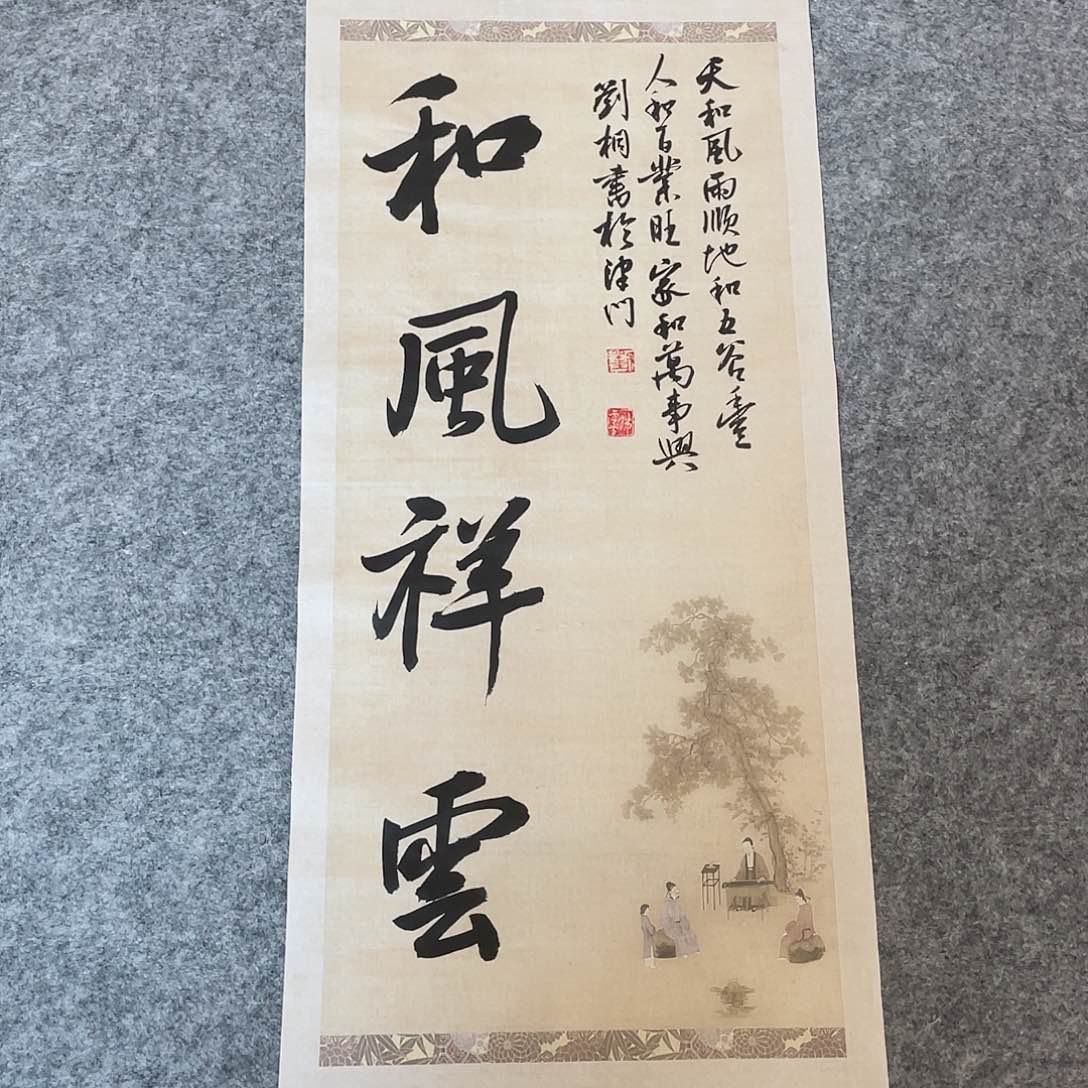 天和風雨順地和五谷豐
人和百業旺家和萬事興
劉桐書於津門
和風祥雲